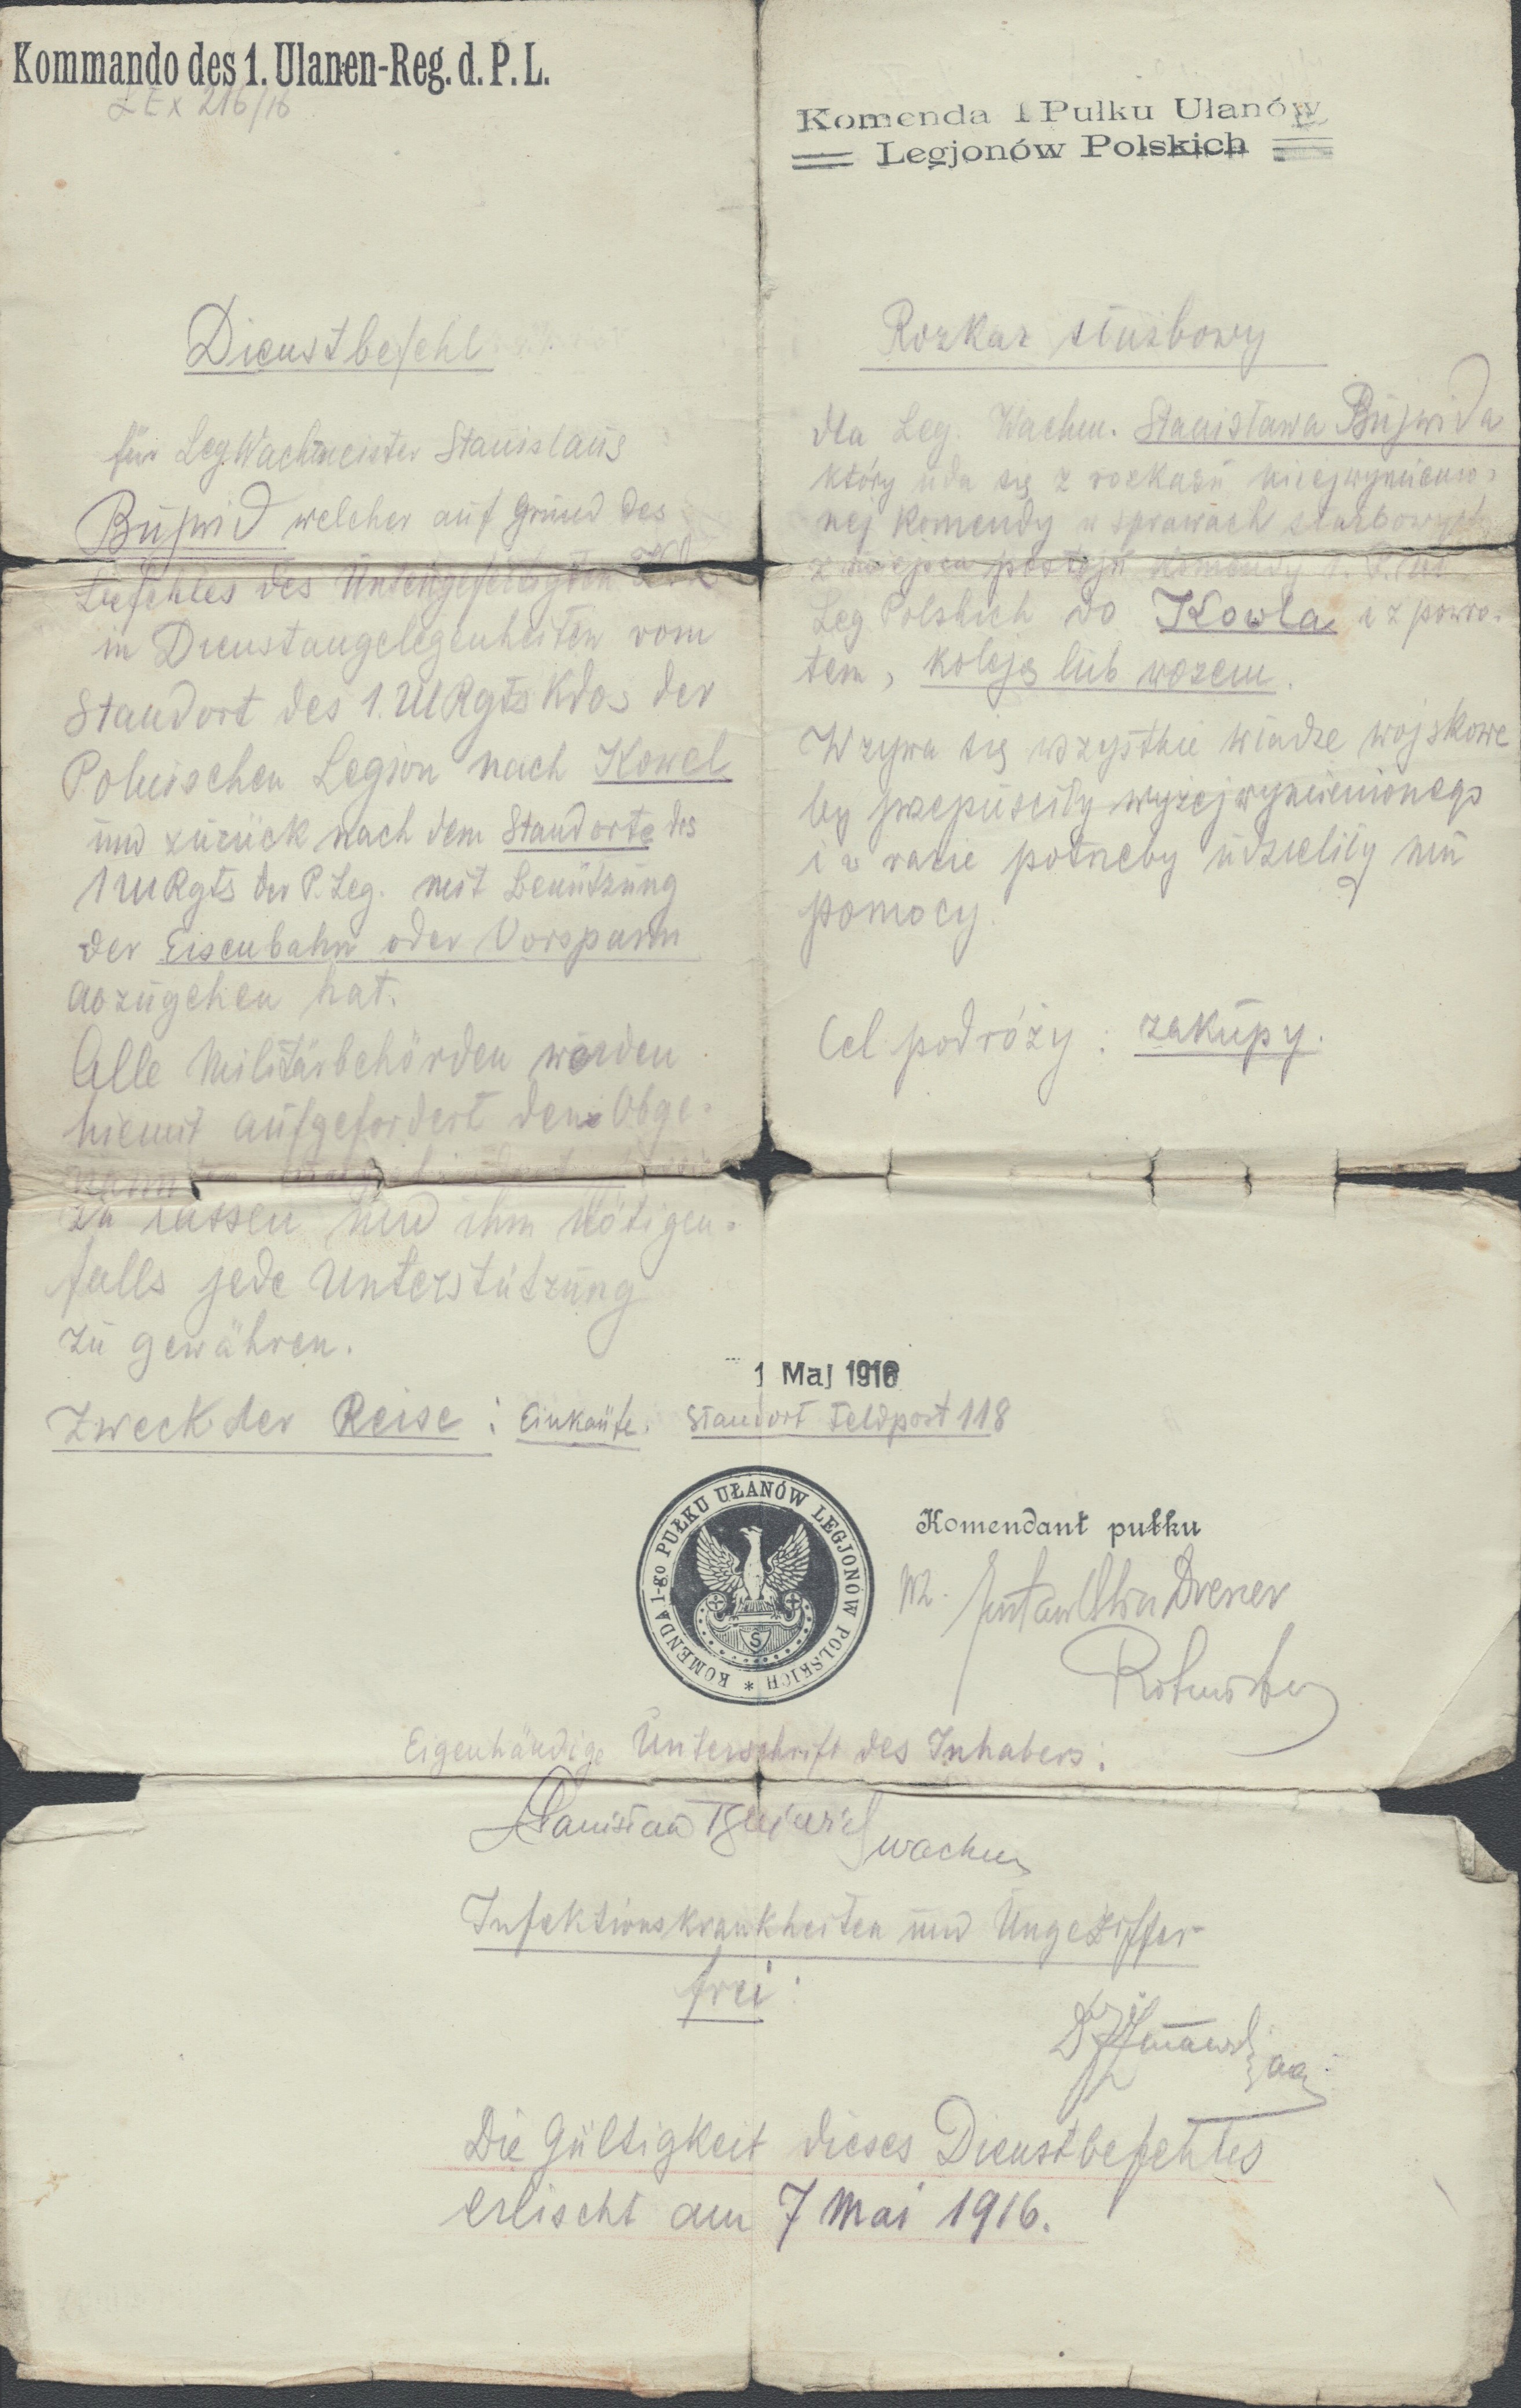 Kommando des 1. Ulanen-Reg. d. P. L.
Ex 216/16
Dienstbefehl
für Leg.Wachtmeister Stanislaus
Bujwid welcher auf Grund des
Befehles des Untengefertigten
in Dienstangelegenheiten vom
Standort des 1. UlRgtsKdos der
Polnischen Legion nach Kowel
und zurück nach dem Standorte des
1 UlRgts der P. Leg. mit Benützung
der Eisenbahn oder Vorspann
abzugehen hat.
Alle Militärbehörden werden
hiemit aufgefordert den Obge-
zu lassen und ihm nötigen-
falls jede Unterstützung
zu gewähren.
Zweck der Reise: Einkäufe.
Komenda 1 Pułku Ułanów
Legjonów Polskich
Rozkaz służbowy
dla Leg. Wachm. Stanisława Bujwida
który uda się z rozkazu niżejwymienio-
nej Komendy w sprawach służbowych
z miejsca postoju Komendy 1. P. Uł.
Leg Polskich do Kowla i z powro-
tem, koleją lub wozem.
Wzywa się wszystkie władze wojskowe
by przepuściły wyżejwymienionego
i w razie potrzeby udzieliły mu
pomocy.
Cel podróży: zakupy.
1 Maj 1916
Standort Feldpost 118
KOMENDA 1-go PUŁKU UŁANÓW LEGJONÓW POLSKICH *
S
Komendant pułku
Dreser
Rotmistrz
Eigenhändige Unterschrift des Inhabers:
Stanisław Bujwid wachm
Infektionskrankheiten und Ungeziffer
frei:
Dr
Die Gültigkeit dieses Dienstbefehles
erlischt am 7 Mai 1916.